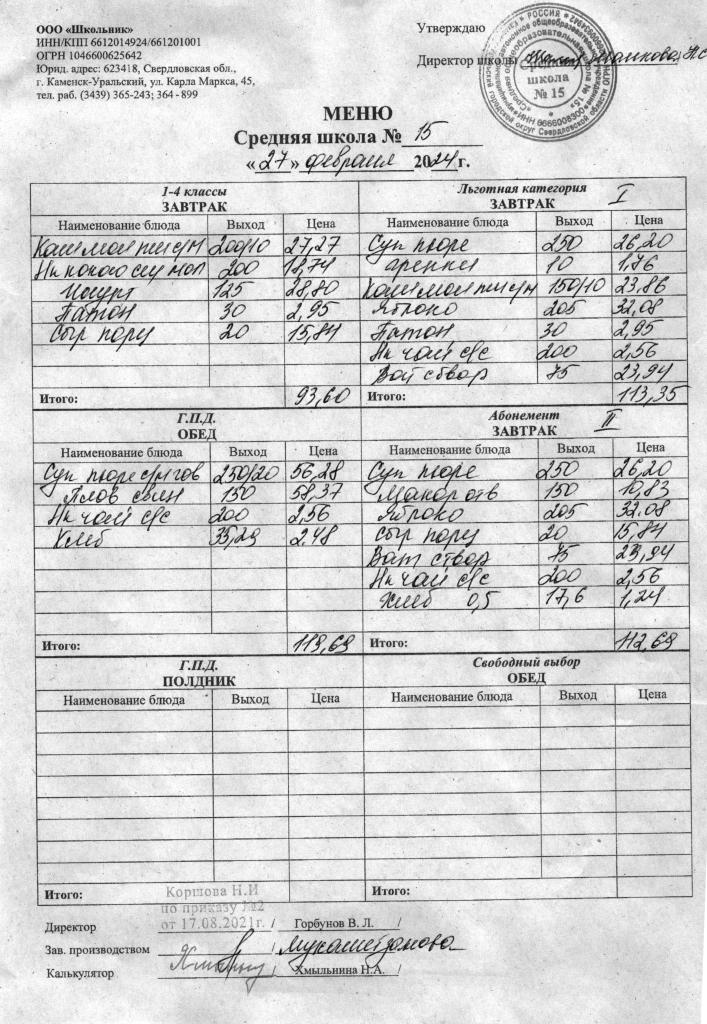 ООО «Школьник»
ИНН/КПП 6612014924/661201001
ОГРН 1046600625642
Юрид. адрес: 623418, Свердловская обл.,
г. Каменск-Уральский, ул. Карла Маркса, 45,
тел. раб. (3439) 365-243; 364 - 899
Утверждаю
Директор школы
школа
№ 15
МЕНЮ
Средняя школа № 15
« 27 » февраля 2024г.
1-4 классы
ЗАВТРАК
Наименование блюда Выход Цена
200/10 27,27
200 18,74
Йогурт 125 28,80
Батон 30 2,95
Сыр порц 20 15,84
Итого: 93,60
Льготная категория I
ЗАВТРАК
Наименование блюда Выход Цена
Суп пюре 250 26,20
гренки 10 1,76
150/10 23.86
Яблоко 205 32,08
Батон 30 2,95
Нк чай с/с 200 2,56
75 23,94
Итого: 113,35
Г.П.Д.
ОБЕД
Наименование блюда Выход Цена
Суп пюре 250/20 56,28
Плов 150 58,37
Нк чай с/с 200 2,56
Хлеб 35,29 2.48
Итого: 119,69
Абонемент II
ЗАВТРАК
Наименование блюда Выход Цена
Суп пюре 250 26,20
Макар отв 150 10,83
Яблоко 205 32.08
Сыр порц 20 15,84
75 23,94
Нк чай с/с 200 2,56
Хлеб 0,5 17,6 1,24
Итого: 112,69
Г.П.Д.
ПОЛДНИК
Наименование блюда Выход Цена
Итого:
Свободный выбор
ОБЕД
Наименование блюда Выход Цена
Итого:
Коршова Н.И
по приказу №2
от 17.08.2021г.
Директор / Горбунов В. Л. /
Зав. производством /
Калькулятор / Хмыльнина Н.А. /